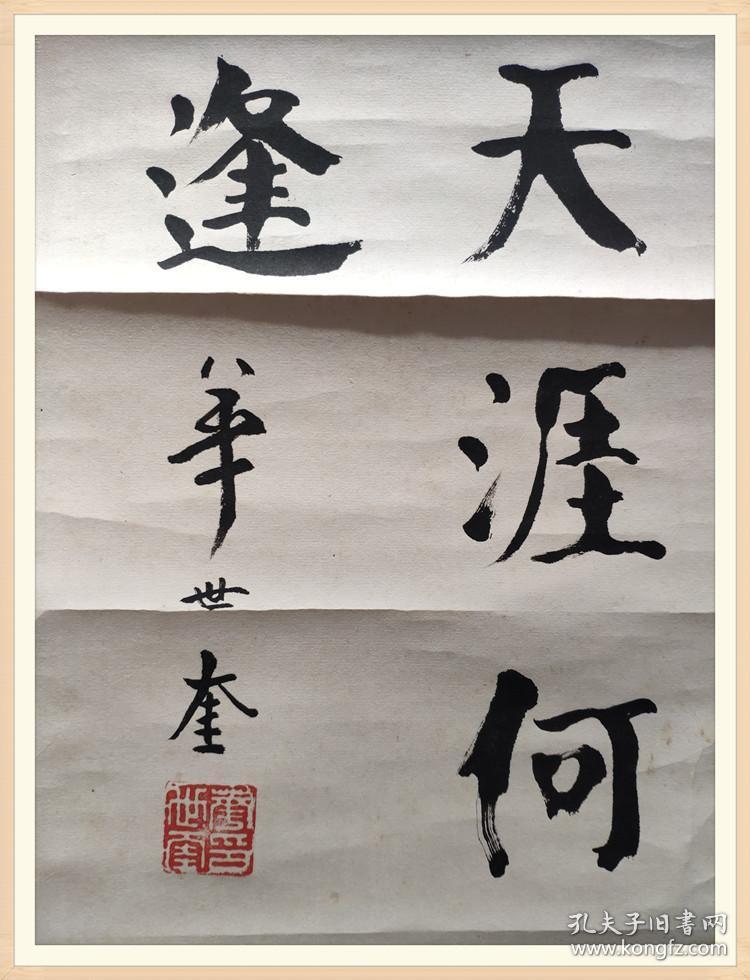 天涯何
逢
華世奎
孔夫子旧书网
www.kongfz.com